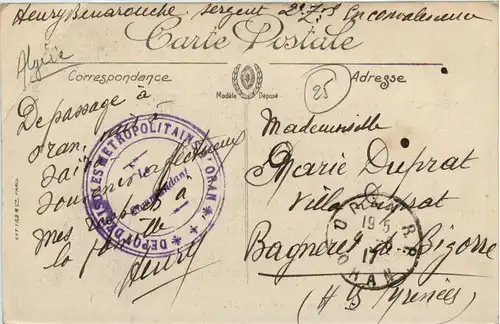 Henry Benarouche. sergent 2e
En convalescence
Algérie
Carte Postale
Correspondance
Modèle Déposé
Adresse
25
De passage à
Oran,
souvenirs affectueux
Mes respects à
la famille
Henry
DEPOT DES ISOLES METROPOLITAINS D'ORAN
Le
Commandant
Mademoiselle
Marie Duprat
Villa Duprat
Bagnères de Bigorre
(Hes Pyrénées)
ORAN R.P.
19-5
17
ORAN